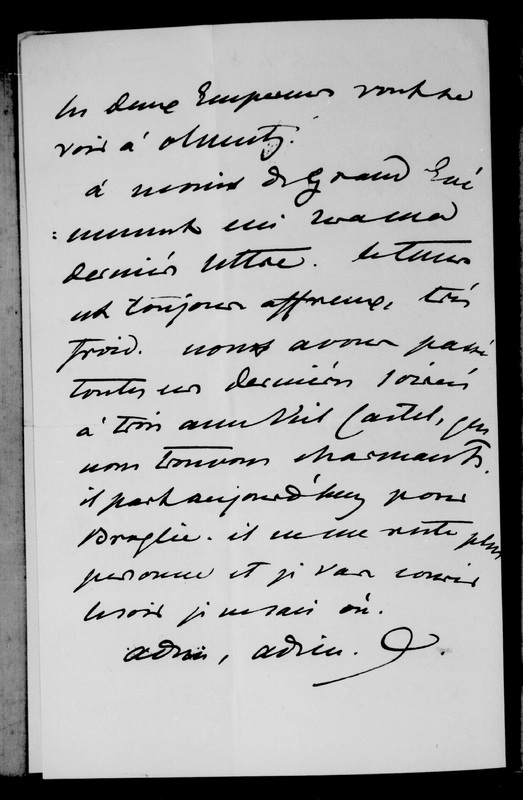 les deux Empereurs vont se
voir à olmutz.
à moins de Grand Evé
=nement ceci sera ma
dernière lettre. le tems
est toujours affreux, très
froid. nous avons passé
toutes ces dernières soirées
à trois avec Viel Castel, que
nous trouvons charmant.
il part aujourd'huy pour
Broglie. il ne me reste plus
personne et je vais courir
le soir je ne sais où.
adieu, adieu.